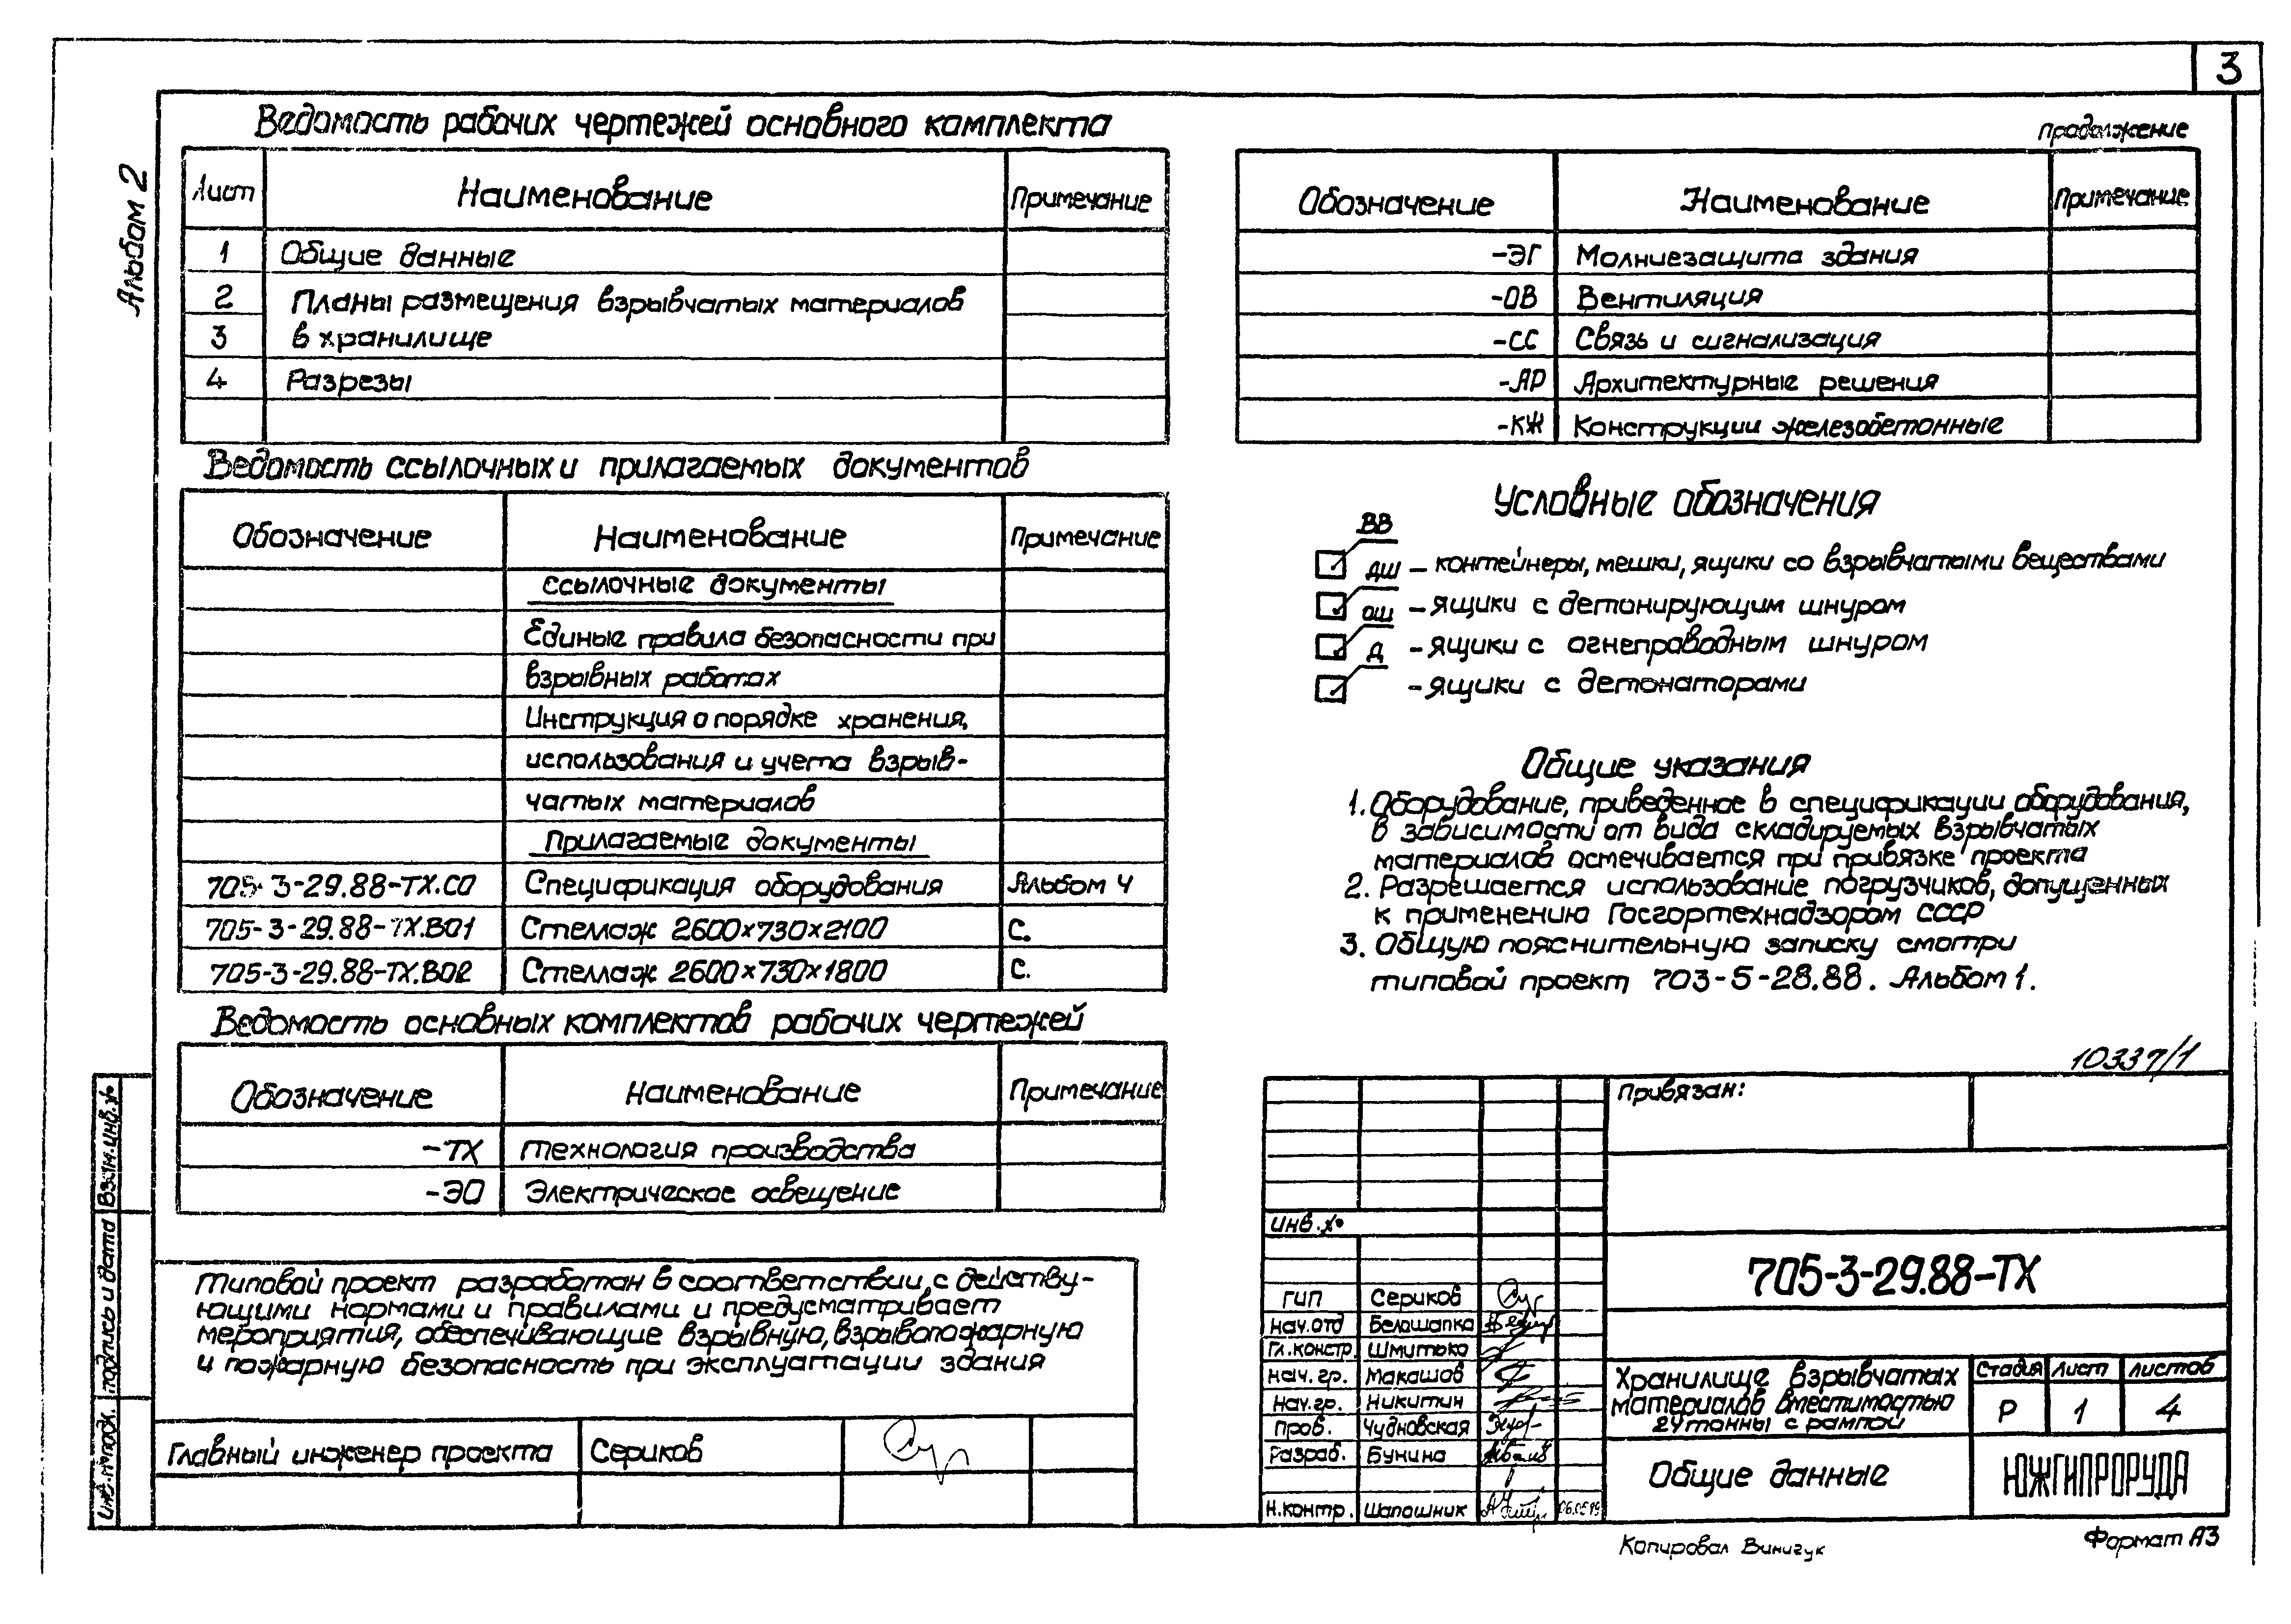 3
Альбом 2
Ведомость рабочих чертежей основного комплекта
Лист Наименование Примечание
1 Общие данные
2 Планы размещения взрывчатых материалов
3 в хранилище
4 Разрезы
Ведомость ссылочных и прилагаемых документов
Обозначение Наименование Примечание
ссылочные документы
Единые правила безопасности при
взрывных работах
Инструкция о порядке хранения,
использования и учета взрыв-
чатых материалов
прилагаемые документы
705-3-29.88-ТХ.СО Спецификация оборудования Альбом 4
705-3-29.88-ТХ.ВО1 Стеллаж 2600×730×2100 С.
705-3-29.88-ТХ.ВО2 Стеллаж 2600×730×1800 С.
Ведомость основных комплектов рабочих чертежей
Обозначение Наименование Примечание
-ТХ Технология производства
-ЭО Электрическое освещение
Типовой проект разработан в соответствии с действу-
ющими нормами и правилами и предусматривает
мероприятия, обеспечивающие взрывную, взрывопожарную
и пожарную безопасность при эксплуатации здания
Главный инженер проекта Сериков
продолжение
Обозначение Наименование Примечание
-ЭГ Молниезащита здания
-ОВ Вентиляция
-СС Связь и сигнализация
-АР Архитектурные решения
-КЖ Конструкции железобетонные
Условные обозначения
ВВ
– контейнеры, мешки, ящики со взрывчатыми веществами
ДШ
– ящики с детонирующим шнуром
ОШ
– ящики с огнепроводным шнуром
Д
– ящики с детонаторами
Общие указания
1. Оборудование, приведенное в спецификации оборудования,
в зависимости от вида складируемых взрывчатых
материалов осмечивается при привязке проекта
2. Разрешается использование погрузчиков, допущенных
к применению Госгортехнадзором СССР
3. Общую пояснительную записку смотри
типовой проект 703-5-28.88. Альбом 1.
10337/1
Привязан:
инв. №
705-3-29.88-ТХ
ГИП Сериков
нач.отд Белошапка
Гл.констр. Шмитько
нач. гр. Макашов
Нач.гр. Никитин
Пров. Чудновская
Разраб. Бунина
Н.контр. Шапошник
Хранилище взрывчатых
материалов вместимостью
24 тонны с рампой
Стадия Лист Листов
Р 1 4
Общие данные
ЮЖГИПРОРУДА
Инв.№подл. Подпись и дата Взам.инв.№
Копировал Винигук
Формат А3